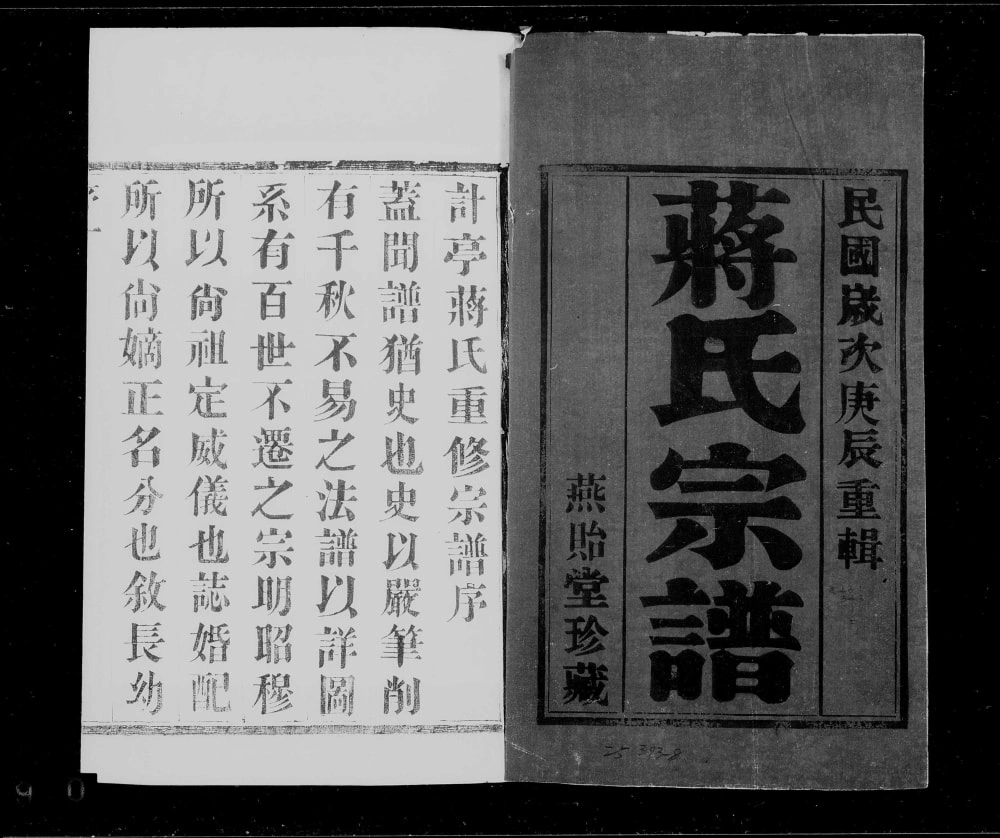 民國歲次庚辰重輯
蔣氏宗譜
燕貽堂珍藏
25 393-8
計亭蔣氏重修宗譜序
蓋聞譜猶史也史以嚴筆削
有千秋不易之法譜以詳圖
系有百世不遷之宗明昭穆
所以尙祖定威儀也誌婚配
所以尙嫡正名分也敘長幼